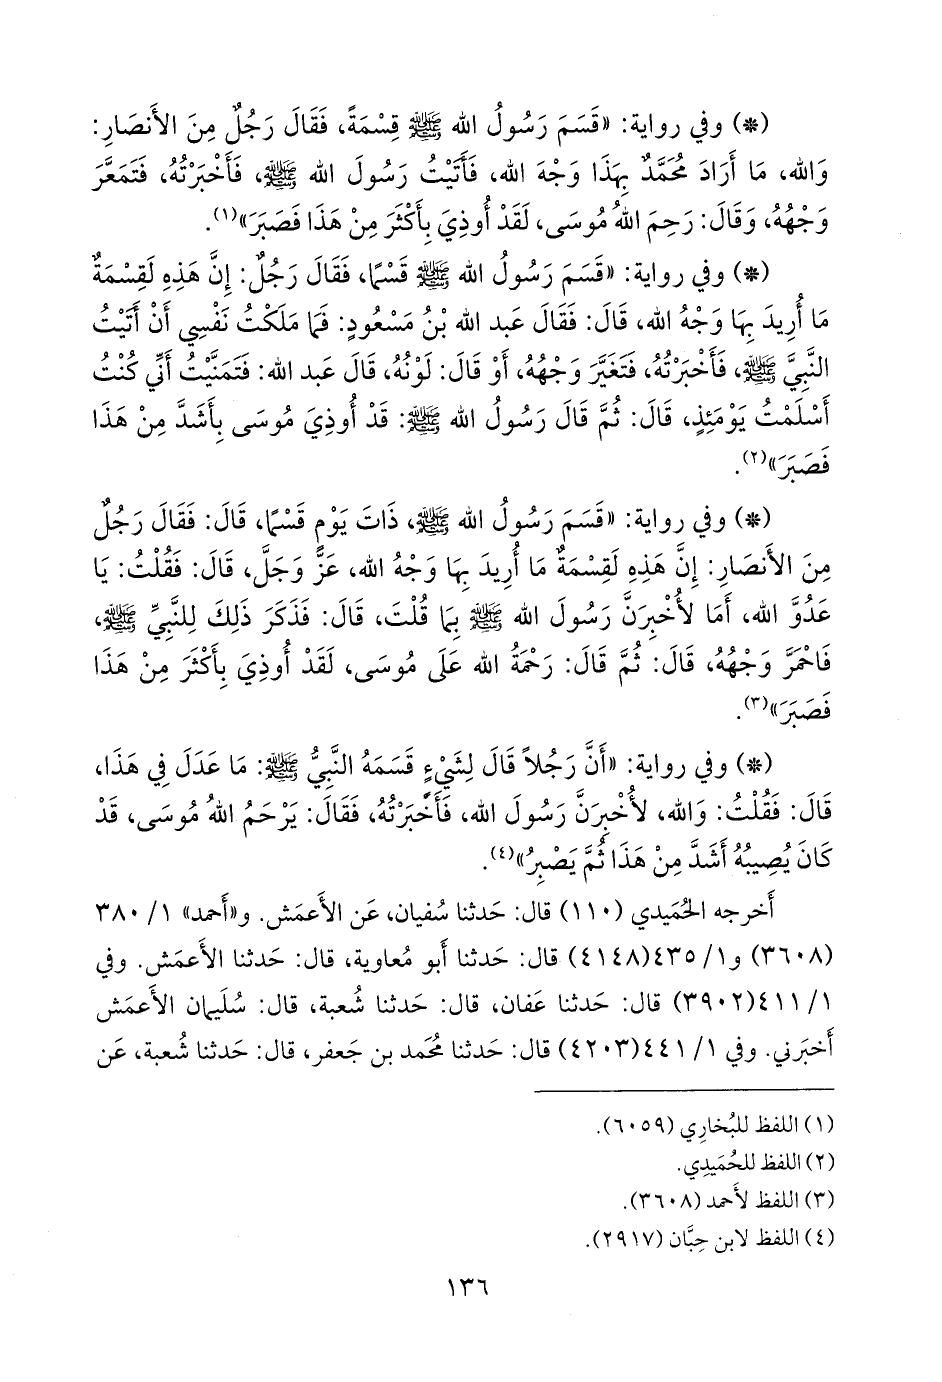 (*) وفي رواية: «قَسَمَ رَسُولُ الله ﷺ قِسْمَةً، فَقَالَ رَجُلٌ مِنَ الأَنصَارِ:
وَالله، مَا أَرَادَ مُحَمَّدٌ بِهَذَا وَجْهَ الله، فَأَتَيْتُ رَسُولَ الله ﷺ، فَأَخْبَرْتُهُ، فَتَمَعَّرَ
وَجْهُهُ، وَقَالَ: رَحِمَ اللهُ مُوسَى، لَقَدْ أُوذِيَ بِأَكْثَرَ مِنْ هَذَا فَصَبَرَ»(١).
(*) وفي رواية: «قَسَمَ رَسُولُ الله ﷺ قَسْمًا، فَقَالَ رَجُلٌ: إِنَّ هَذِهِ لَقِسْمَةٌ
مَا أُرِيدَ بِهَا وَجْهُ الله، قَالَ: فَقَالَ عَبد الله بْنُ مَسْعُودٍ: فَمَا مَلَكْتُ نَفْسِي أَنْ أَتَيْتُ
النَّبِيَّ ﷺ، فَأَخْبَرْتُهُ، فَتَغَيَّرَ وَجْهُهُ، أَوْ قَالَ: لَوْنُهُ، قَالَ عَبد الله: فَتَمَنَّيْتُ أَنِّي كُنْتُ
أَسْلَمْتُ يَوْمَئِذٍ، قَالَ: ثُمَّ قَالَ رَسُولُ الله ﷺ: قَدْ أُوذِيَ مُوسَى بِأَشَدَّ مِنْ هَذَا
فَصَبَرَ»(٢).
(*) وفي رواية: «قَسَمَ رَسُولُ الله ﷺ، ذَاتَ يَوْمٍ قَسْمًا، قَالَ: فَقَالَ رَجُلٌ
مِنَ الأَنصَارِ: إِنَّ هَذِهِ لَقِسْمَةٌ مَا أُرِيدَ بِهَا وَجْهُ الله، عَزَّ وَجَلَّ، قَالَ: فَقُلْتُ: يَا
عَدُوَّ الله، أَمَا لأُخْبِرَنَّ رَسُولَ الله ﷺ بِمَا قُلْتَ، قَالَ: فَذَكَرَ ذَلِكَ لِلنَّبِيِّ ﷺ،
فَاحْمَرَّ وَجْهُهُ، قَالَ: ثُمَّ قَالَ: رَحْمَةُ الله عَلَى مُوسَى، لَقَدْ أُوذِيَ بِأَكْثَرَ مِنْ هَذَا
فَصَبَرَ»(٣).
(*) وفي رواية: «أَنَّ رَجُلاً قَالَ لِشَيْءٍ قَسَمَهُ النَّبِيُّ ﷺ: مَا عَدَلَ فِي هَذَا،
قَالَ: فَقُلْتُ: وَالله، لأُخْبِرَنَّ رَسُولَ الله، فَأَخْبَرْتُهُ، فَقَالَ: يَرْحَمُ اللهُ مُوسَى، قَدْ
كَانَ يُصِيبُهُ أَشَدَّ مِنْ هَذَا ثُمَّ يَصْبِرُ»(٤).
أَخرجه الحُمَيدي (١١٠) قال: حَدثنا سُفيان، عَن الأَعمَش. و«أَحمد» ١/ ٣٨٠
(٣٦٠٨) و١/ ٤٣٥(٤١٤٨) قال: حَدثنا أَبو مُعاوية، قال: حَدثنا الأَعمَش. وفي
١/ ٤١١(٣٩٠٢) قال: حَدثنا عَفان، قال: حَدثنا شُعبة، قال: سُلَيمان الأَعمَش
أَخبَرني. وفي ١/ ٤٤١(٤٢٠٣) قال: حَدثنا مُحَمد بن جَعفر، قال: حَدثنا شُعبة، عَن
(١) اللفظ للبُخارِي (٦٠٥٩).
(٢) اللفظ للحُمَيدِي.
(٣) اللفظ لأَحمد (٣٦٠٨).
(٤) اللفظ لابن حِبَّان (٢٩١٧).
١٣٦